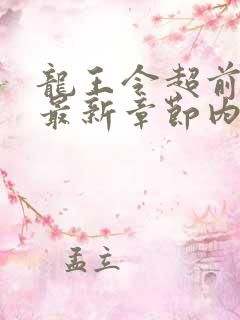 龍王令超前
最新章節內
孟立